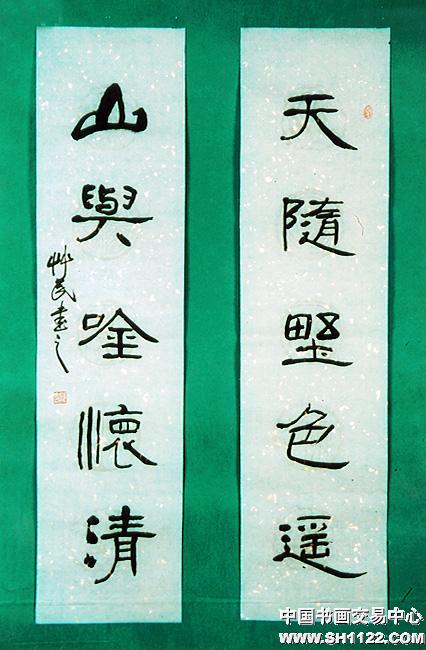 天隨野色遙
山與唫懷清
艸民書之
中国书画交易中心
www.SH1122.com